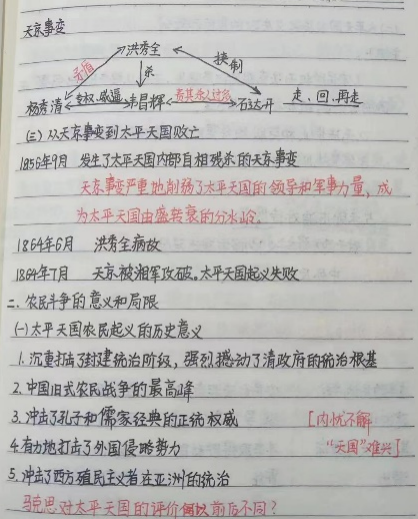 天京事变
洪秀全
矛盾
杀
挟制
杨秀清
专权、威逼
韦昌辉
责其杀人过多
石达开
走、回、再走
(三)从天京事变到太平天国败亡
1856年9月 发生了太平天国内部自相残杀的天京事变
天京事变严重地削弱了太平天国的领导和军事力量,成
为太平天国由盛转衰的分水岭。
1864年6月 洪秀全病故
1864年7月 天京被湘军攻破。太平天国起义失败
二、农民斗争的意义和局限
(一)太平天国农民起义的历史意义
1.沉重打击了封建统治阶级,强烈撼动了清政府的统治根基
2.中国旧式农民战争的最高峰
3.冲击了孔子和儒家经典的正统权威
[内忧不解
4.有力地打击了外国侵略势力
“天国”难兴]
5.冲击了西方殖民主义者在亚洲的统治
马克思对太平天国的评价何以前后不同?